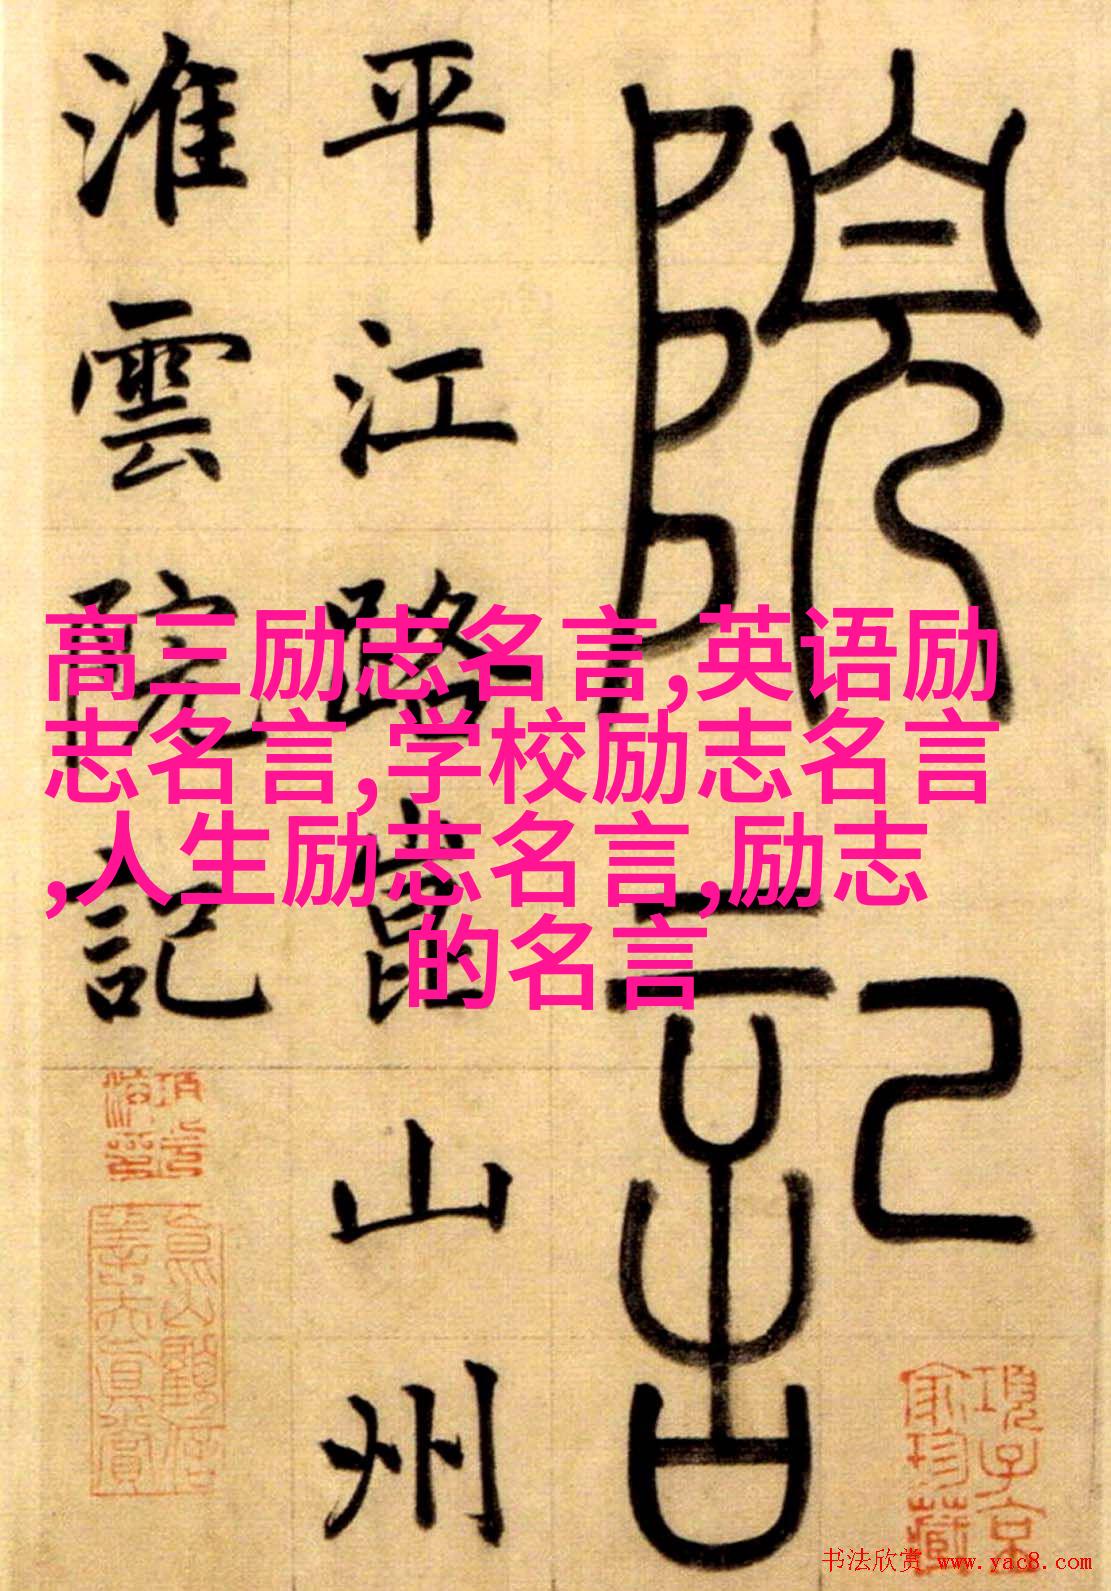 院記
平江路崑山州
淮雲院記
高三励志名言,英语励
志名言,学校励志名言
,人生励志名言,励志
的名言
項子京
家珍藏
书法欣赏 www.yac8.com